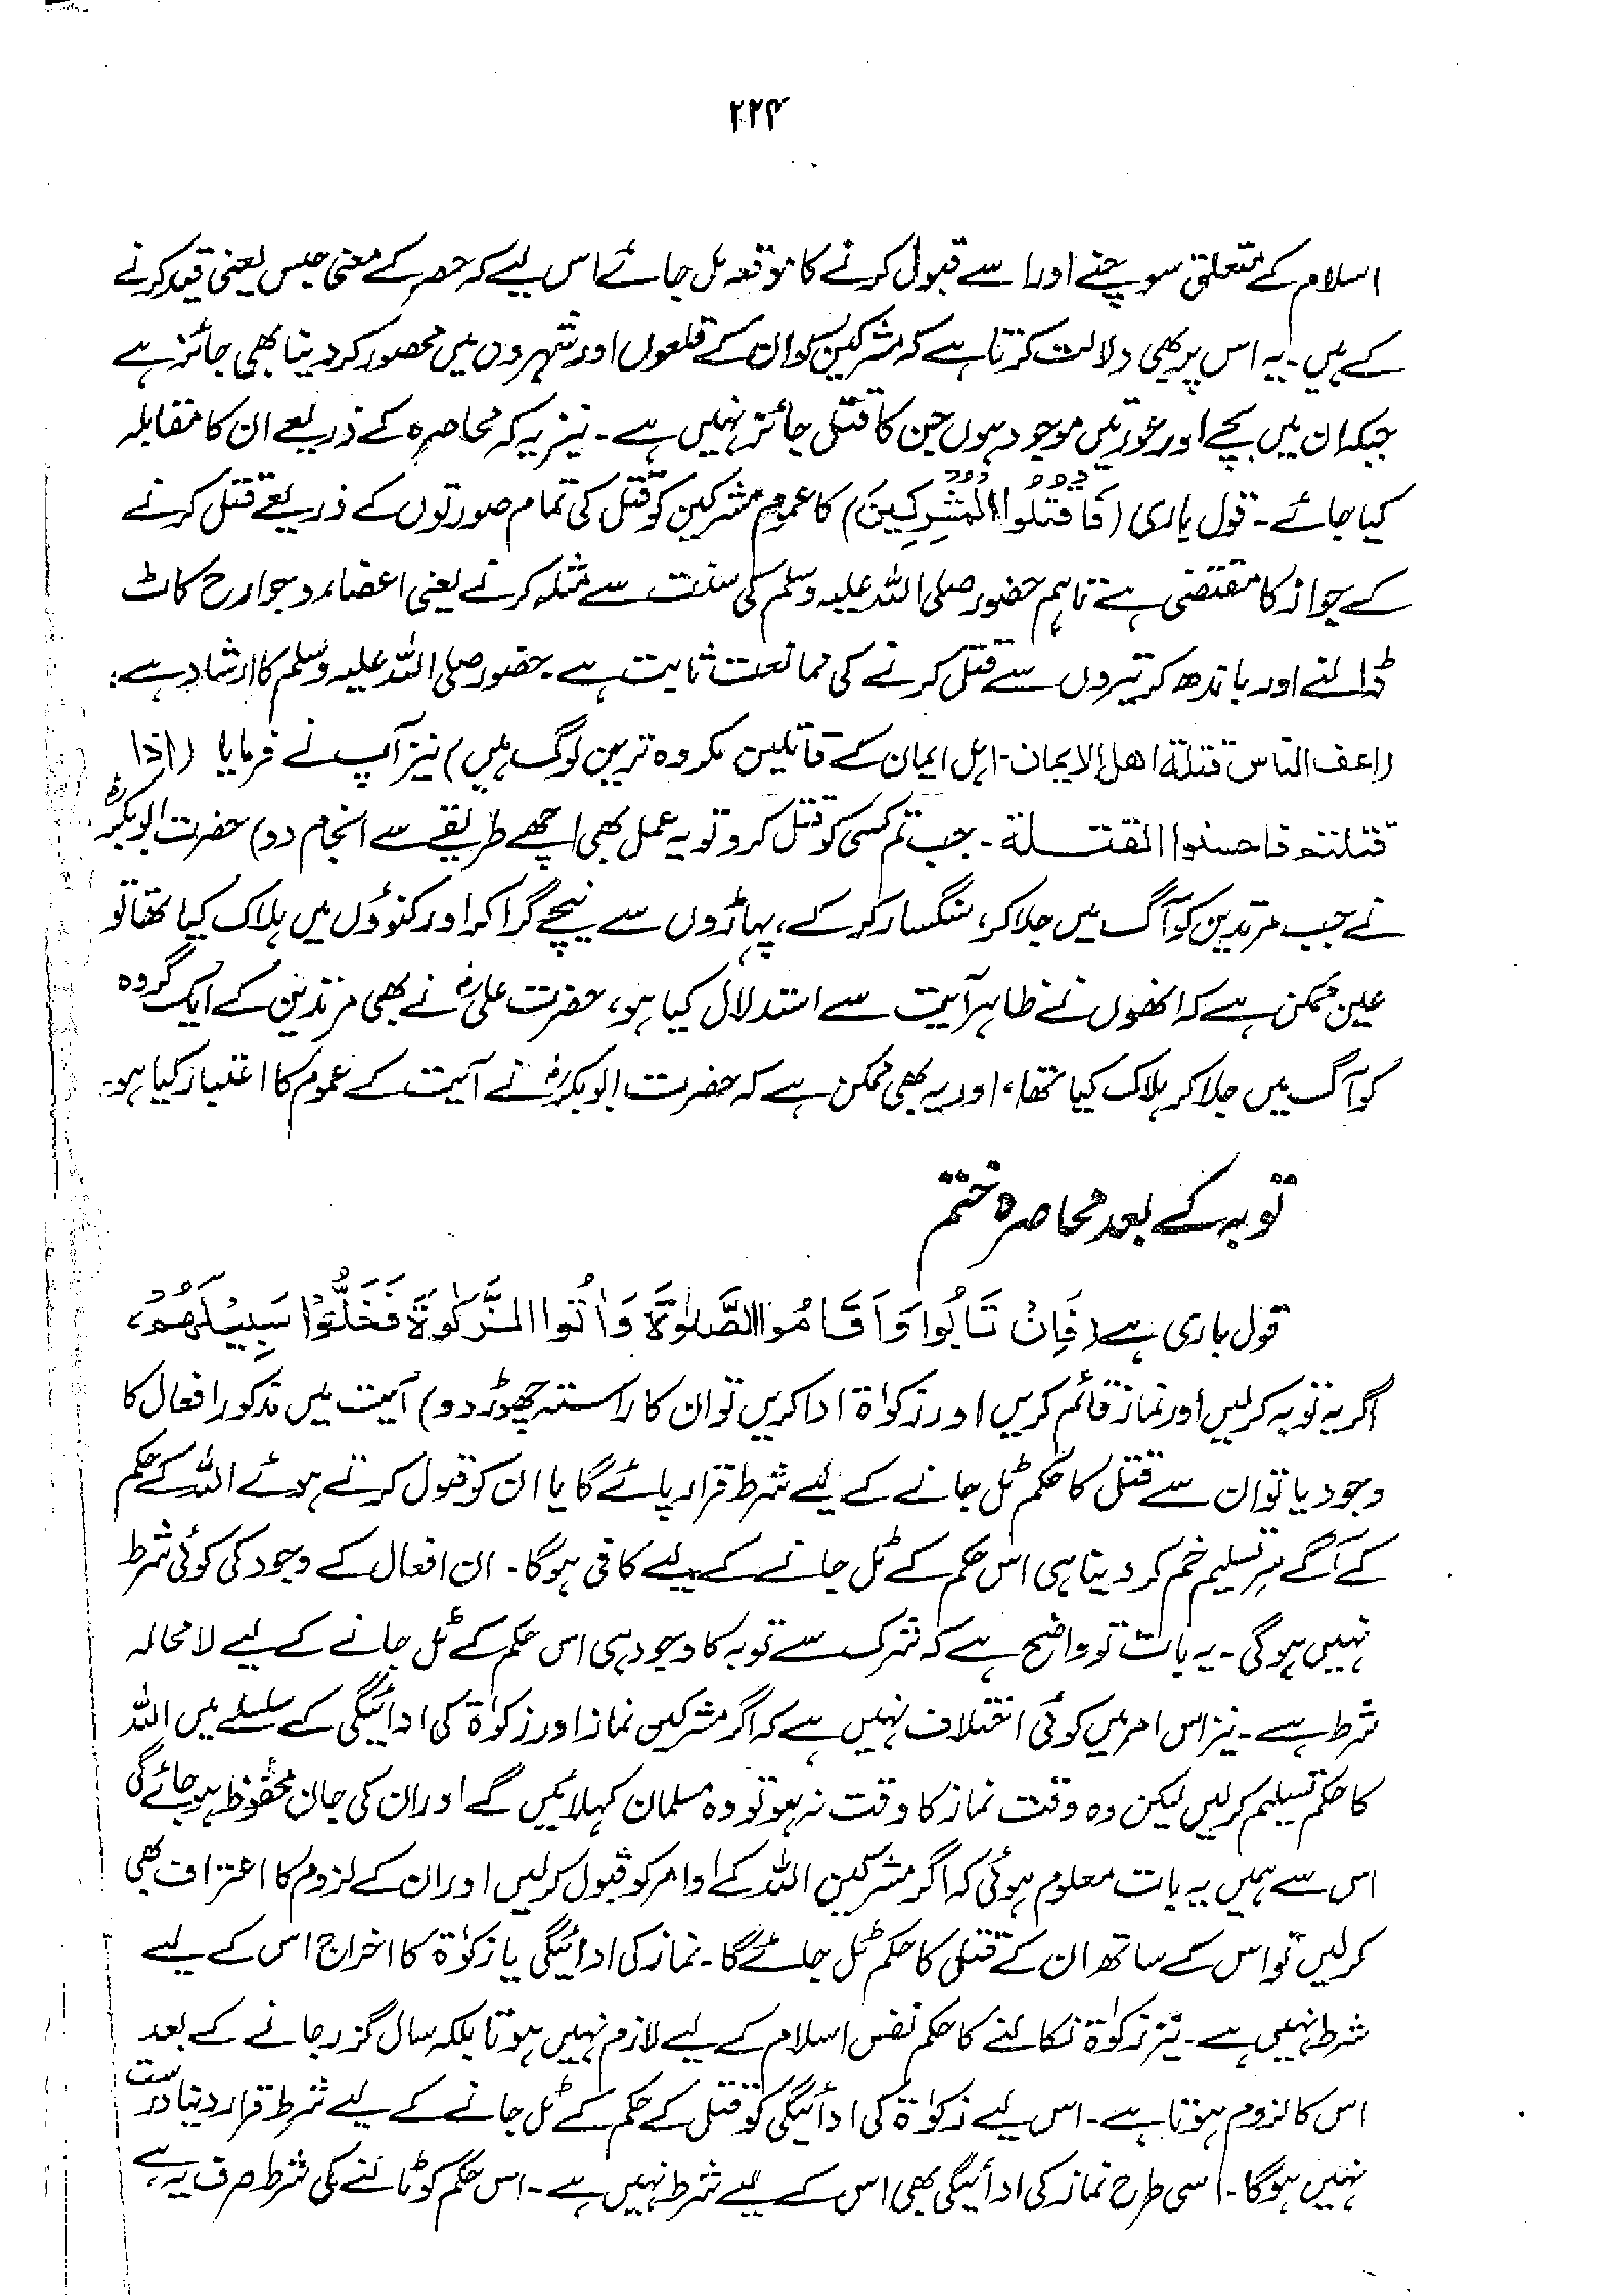 ۲۲۴
اسلام کے متعلق سوچنے اور اسے قبول کرنے کا موقعہ مل جائے اس لیے کہ حصر کے معنی حبس یعنی قید کرنے
کے ہیں۔ یہ اس پر بھی دلالت کرتا ہے کہ مشرکین کو ان کے قلعوں اور شہروں میں محصور کر دینا بھی جائز ہے
جبکہ ان میں بچے اور عورتیں موجود ہوں جن کا قتل جائز نہیں ہے۔ نیز یہ کہ محاصرہ کے ذریعے ان کا مقابلہ
کیا جائے۔ قول باری (فَاقْتُلُوا الْمُشْرِکِیْنَ) کا عموم مشرکین کو قتل کی تمام صورتوں کے ذریعے قتل کرنے
کے جواز کا مقتضی ہے تاہم حضور صلی اللہ علیہ وسلم کی سنت سے مثلہ کرنے یعنی اعضاء و جوارح کاٹ
ڈالنے اور باندھ کر تیروں سے قتل کرنے کی ممانعت ثابت ہے۔ حضور صلی اللہ علیہ وسلم کا ارشاد ہے:
(اعف الناس قتلة اھل الایمان۔ اہل ایمان کے قاتلین مکروہ ترین لوگ ہیں) نیز آپ نے فرمایا (اذا
قتلتم فاحسنوا القتلة۔ جب تم کسی کو قتل کرو تو یہ عمل بھی اچھے طریقے سے انجام دو) حضرت ابوبکرؓ
نے جب مرتدین کو آگ میں جلا کر، سنگسار کر کے، پہاڑوں سے نیچے گرا کر اور کنوؤں میں ہلاک کیا تھا تو
عین ممکن ہے کہ انھوں نے ظاہر آیت سے استدلال کیا ہو، حضرت علیؓ نے بھی مرتدین کے ایک گروہ
کو آگ میں جلا کر ہلاک کیا تھا، اور یہ بھی ممکن ہے کہ حضرت ابوبکرؓ نے آیت کے عموم کا اعتبار کیا ہو۔
توبہ کے بعد محاصرہ ختم
قول باری ہے (فَاِنْ تَابُوا وَاَقَامُوا الصَّلٰوةَ وَاٰتُوا الزَّکٰوةَ فَخَلُّوْا سَبِیْلَھُمْ،
اگر یہ توبہ کر لیں اور نماز قائم کریں اور زکوٰۃ ادا کریں تو ان کا راستہ چھوڑ دو) آیت میں مذکور افعال کا
وجود یا تو ان سے قتل کا حکم ٹل جانے کے لیے شرط قرار پائے گا یا ان کو قبول کرتے ہوئے اللہ کے حکم
کے آگے سرِ تسلیم خم کر دینا ہی اس حکم کے ٹل جانے کے لیے کافی ہوگا۔ ان افعال کے وجود کی کوئی شرط
نہیں ہوگی۔ یہ بات تو واضح ہے کہ شرک سے توبہ کا وجود ہی اس حکم کے ٹل جانے کے لیے لامحالہ
شرط ہے۔ نیز اس امر میں کوئی اختلاف نہیں ہے کہ اگر مشرکین نماز اور زکوٰۃ کی ادائیگی کے سلسلے میں اللہ
کا حکم تسلیم کر لیں لیکن وہ وقت نماز کا وقت نہ ہو تو وہ مسلمان کہلائیں گے اور ان کی جان محفوظ ہو جائے گی
اس سے ہمیں یہ بات معلوم ہوئی کہ اگر مشرکین اللہ کے اوامر کو قبول کر لیں اور ان کے لزوم کا اعتراف بھی
کر لیں تو اس کے ساتھ ان کے قتل کا حکم ٹل جائے گا۔ نماز کی ادائیگی یا زکوٰۃ کا اخراج اس کے لیے
شرط نہیں ہے۔ نیز زکوٰۃ نکالنے کا حکم نفس اسلام کے لیے لازم نہیں ہوتا بلکہ سال گزر جانے کے بعد
اس کا لزوم ہوتا ہے۔ اس لیے زکوٰۃ کی ادائیگی کو قتل کے حکم کے ٹل جانے کے لیے شرط قرار دینا درست
نہیں ہوگا۔ اسی طرح نماز کی ادائیگی بھی اس کے لیے شرط نہیں ہے۔ اس حکم کو ٹالنے کی شرط صرف یہ ہے